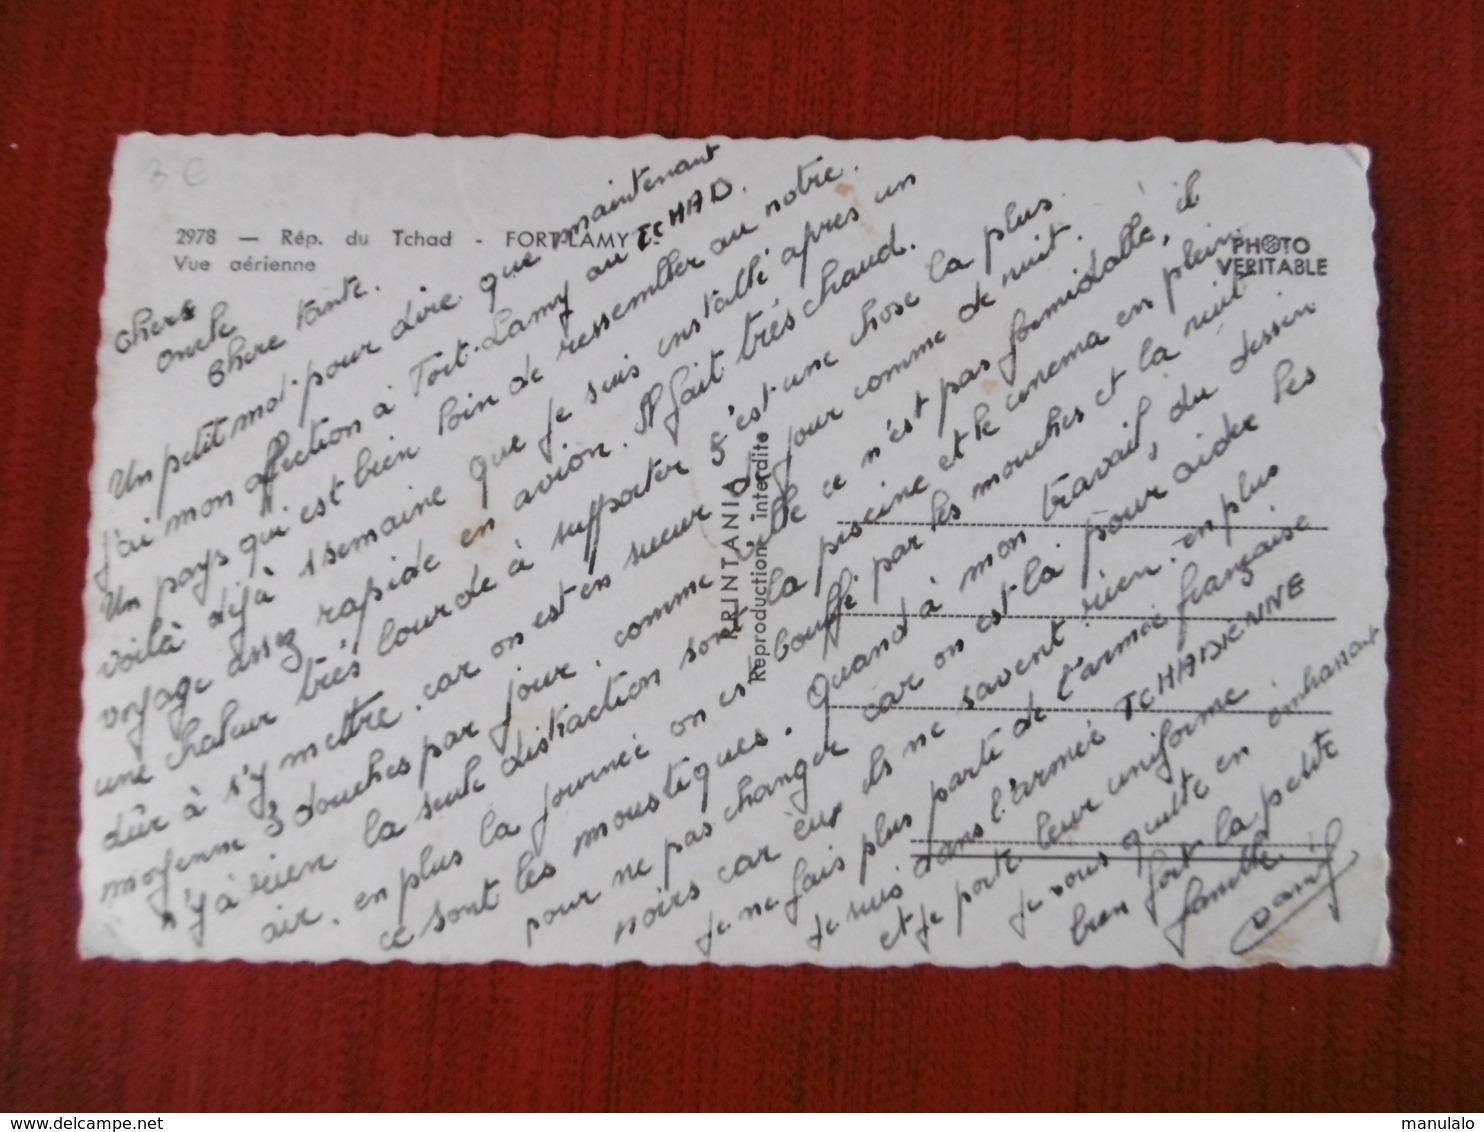 3 €
2978 — Rép. du Tchad - FORT-LAMY
Vue aérienne
PHOTO
VERITABLE
PRINTANIA
Reproduction interdite
Chers
oncle
Chere tante.
Un petit mot pour dire que maintenant
j'ai mon affection à Fort-Lamy au TCHAD.
Un pays qui est bien loin de ressembler au notre.
voilà déjà 1 semaine que je suis installé après un
voyage assez rapide en avion. Il fait très chaud.
une chaleur très lourde à supporter c'est une chose la plus
dûr à s'y mettre. car on est en sueur jour comme de nuit.
moyenne 3 douches par jour. comme ville ce n'est pas formidable, il
n'y à rien la seule distraction sont la piscine et le cinema en plein
air. en plus la journée on est bouffé par les mouches et la nuit
ce sont les moustiques. Quand à mon travail, du dessin
pour ne pas changer car on est là pour aider les
noirs car eux ils ne savent rien. en plus
je ne fais plus parti de l'armée française
je suis dans l'armée TCHADIENNE
et je porte leur uniforme
je vous quitte en embrassant
bien fort la petite
famille